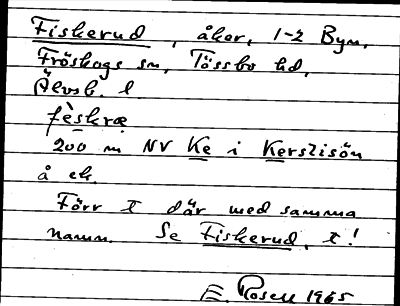 Fiskerud, åker, 1-2 Byn,
Fröskogs sn, Tössbo hd,
Älvsb. l
fèskræ
200 m NV Ke i Kerstisön
å ek.
Förr t där med samma
namn. Se Fiskerud, t!
E. Rosell 1965